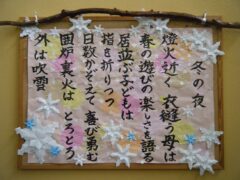 冬の夜
燈火近く 衣縫う母は
春の遊びの楽しさを語る
居並ぶ子どもは
指を折りつつ
日数かぞえて 喜び勇む
囲炉裏火は とろとろ
外は吹雪